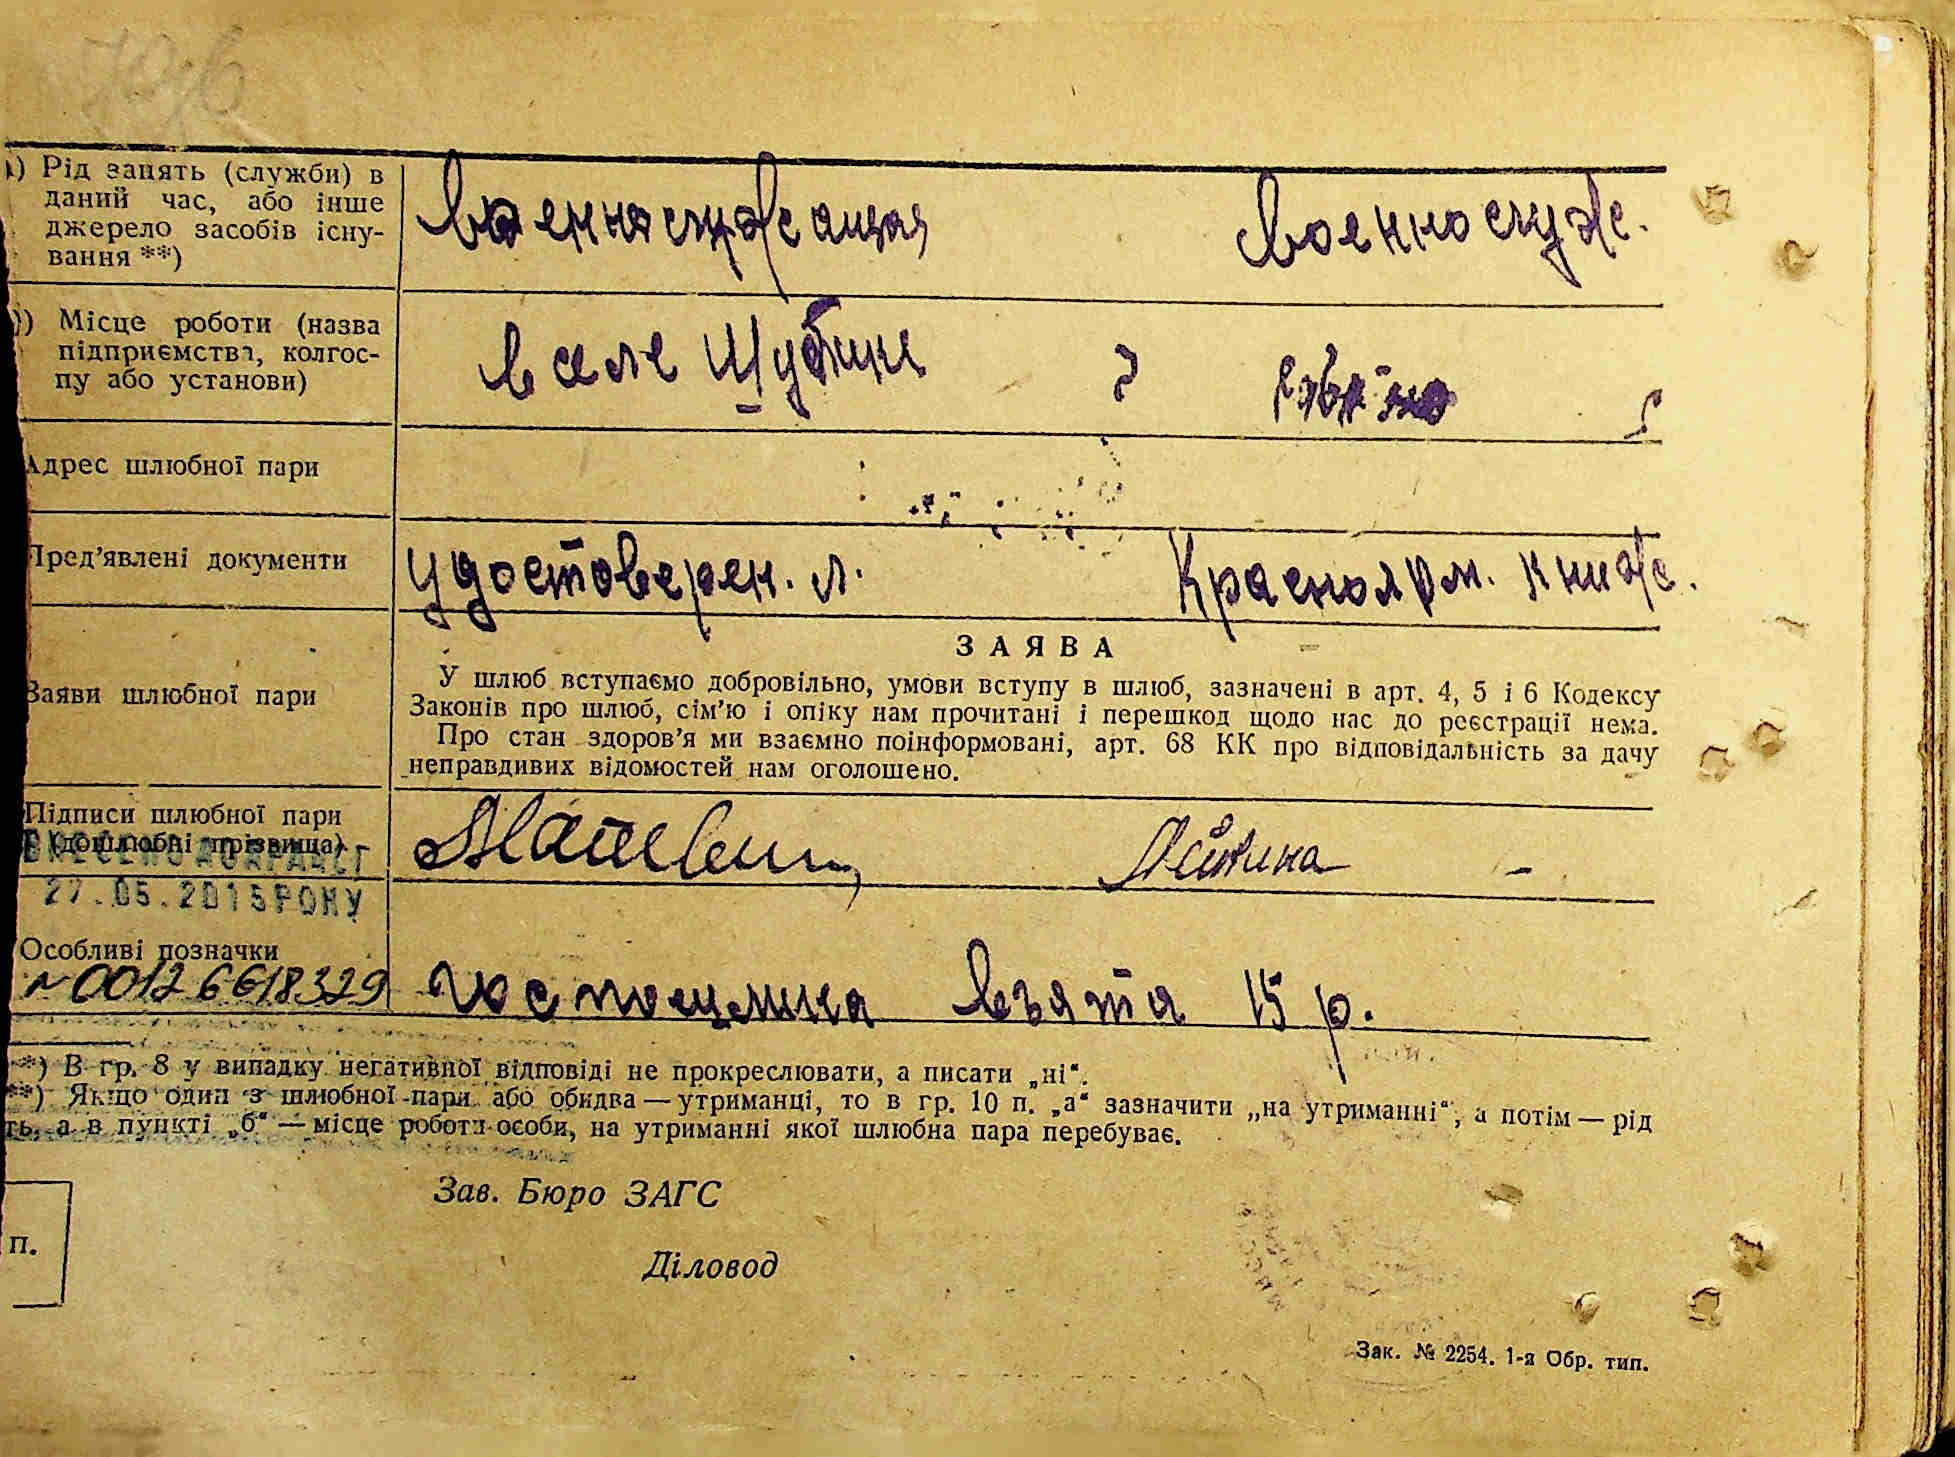 ) Рід занять (служби) в
даний час, або інше
джерело засобів існу-
вання **)
Военнослужащая Военнослуж.
) Місце роботи (назва
підприємства, колгос-
пу або установи)
в селе
Адрес шлюбної пари
Пред'явлені документи
Удостоверен. л. Красноярм. книж.
ЗАЯВА
Заяви шлюбної пари
У шлюб вступаємо добровільно, умови вступу в шлюб, зазначені в арт. 4, 5 і 6 Кодексу
Законів про шлюб, сім'ю і опіку нам прочитані і перешкод щодо нас до реєстрації нема.
Про стан здоров'я ми взаємно поінформовані, арт. 68 КК про відповідальність за дачу
неправдивих відомостей нам оголошено.
Підписи шлюбної пари
(дошлюбні прізвища)
ВНЕСЕНО ДО ДРАЦСГ
27.05.2015РОКУ
Особливі позначки
№00126618329
Госпошлина взята 15 р.
*) В гр. 8 у випадку негативної відповіді не прокреслювати, а писати „ні“.
**) Якщо один з шлюбної пари або обидва — утриманці, то в гр. 10 п. „а“ зазначити „на утриманні“, а потім — рід
ть, а в пункті „б“ — місце роботи особи, на утриманні якої шлюбна пара перебуває.
Зав. Бюро ЗАГС
п.
Діловод
Зак. № 2254. 1-я Обр. тип.